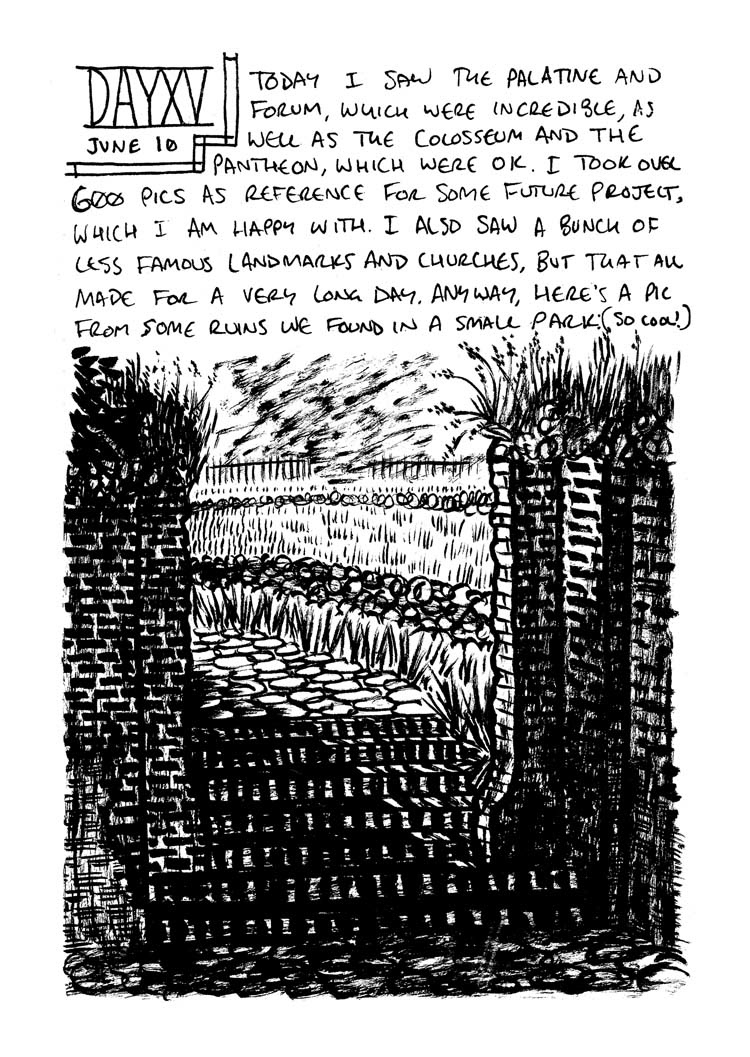 DAY XV
JUNE 10
TODAY I SAW THE PALATINE AND
FORUM, WHICH WERE INCREDIBLE, AS
WELL AS THE COLOSSEUM AND THE
PANTHEON, WHICH WERE OK. I TOOK OVER
600 PICS AS REFERENCE FOR SOME FUTURE PROJECT,
WHICH I AM HAPPY WITH. I ALSO SAW A BUNCH OF
LESS FAMOUS LANDMARKS AND CHURCHES, BUT THAT ALL
MADE FOR A VERY LONG DAY. ANYWAY, HERE'S A PIC
FROM SOME RUINS WE FOUND IN A SMALL PARK: (SO COOL!)